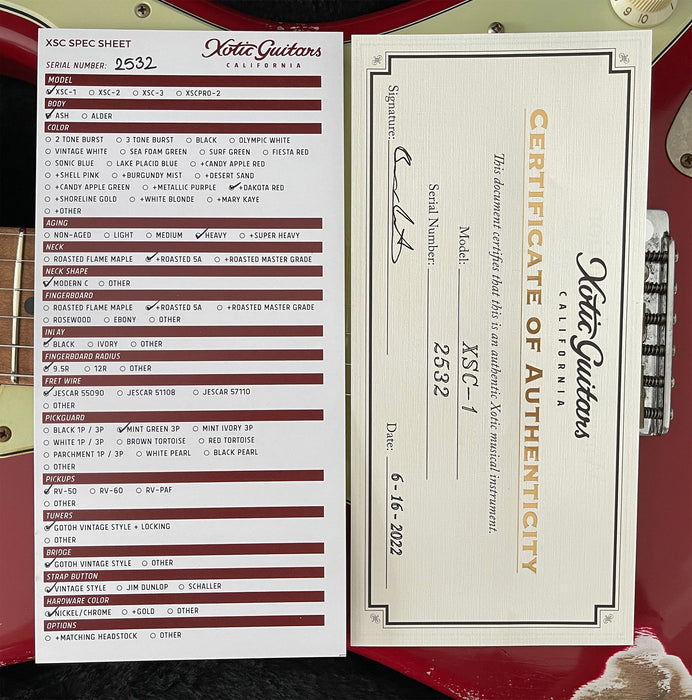 XSC SPEC SHEET
Xotic Guitars
CALIFORNIA
SERIAL NUMBER: 2532
MODEL
XSC-1 XSC-2 XSC-3 XSCPRO-2
BODY
ASH ALDER
COLOR
2 TONE BURST 3 TONE BURST BLACK OLYMPIC WHITE
VINTAGE WHITE SEA FOAM GREEN SURF GREEN FIESTA RED
SONIC BLUE LAKE PLACID BLUE +CANDY APPLE RED
+SHELL PINK +BURGUNDY MIST +DESERT SAND
+CANDY APPLE GREEN +METALLIC PURPLE +DAKOTA RED
+SHORELINE GOLD +WHITE BLONDE +MARY KAYE
+OTHER
AGING
NON-AGED LIGHT MEDIUM HEAVY +SUPER HEAVY
NECK
ROASTED FLAME MAPLE +ROASTED 5A +ROASTED MASTER GRADE
NECK SHAPE
MODERN C OTHER
FINGERBOARD
ROASTED FLAME MAPLE +ROASTED 5A +ROASTED MASTER GRADE
ROSEWOOD EBONY OTHER
INLAY
BLACK IVORY OTHER
FINGERBOARD RADIUS
9.5R 12R OTHER
FRET WIRE
JESCAR 55090 JESCAR 51108 JESCAR 57110
OTHER
PICKGUARD
BLACK 1P / 3P MINT GREEN 3P MINT IVORY 3P
WHITE 1P / 3P BROWN TORTOISE RED TORTOISE
PARCHMENT 1P / 3P WHITE PEARL BLACK PEARL
OTHER
PICKUPS
RV-50 RV-60 RV-PAF
OTHER
TUNERS
GOTOH VINTAGE STYLE + LOCKING
OTHER
BRIDGE
GOTOH VINTAGE STYLE OTHER
STRAP BUTTON
VINTAGE STYLE JIM DUNLOP SCHALLER
HARDWARE COLOR
NICKEL/CHROME +GOLD OTHER
OPTIONS
+MATCHING HEADSTOCK OTHER
Xotic Guitars
CALIFORNIA
CERTIFICATE OF AUTHENTICITY
This document certifies that this is an authentic Xotic musical instrument.
Model: XSC-1
Serial Number: 2532
Signature: Date: 6-16-2022